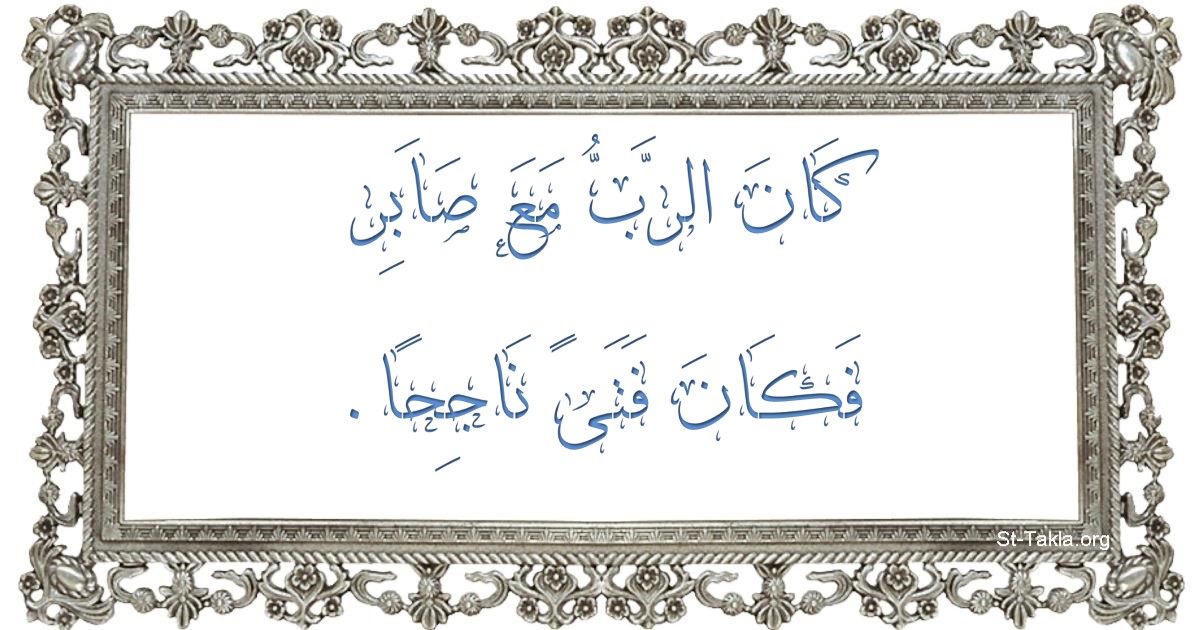 كَانَ الرَّبُّ مَعَ صَابِرِ
فَكَانَ فَتَىً نَاجِحًا .
St-Takla.org